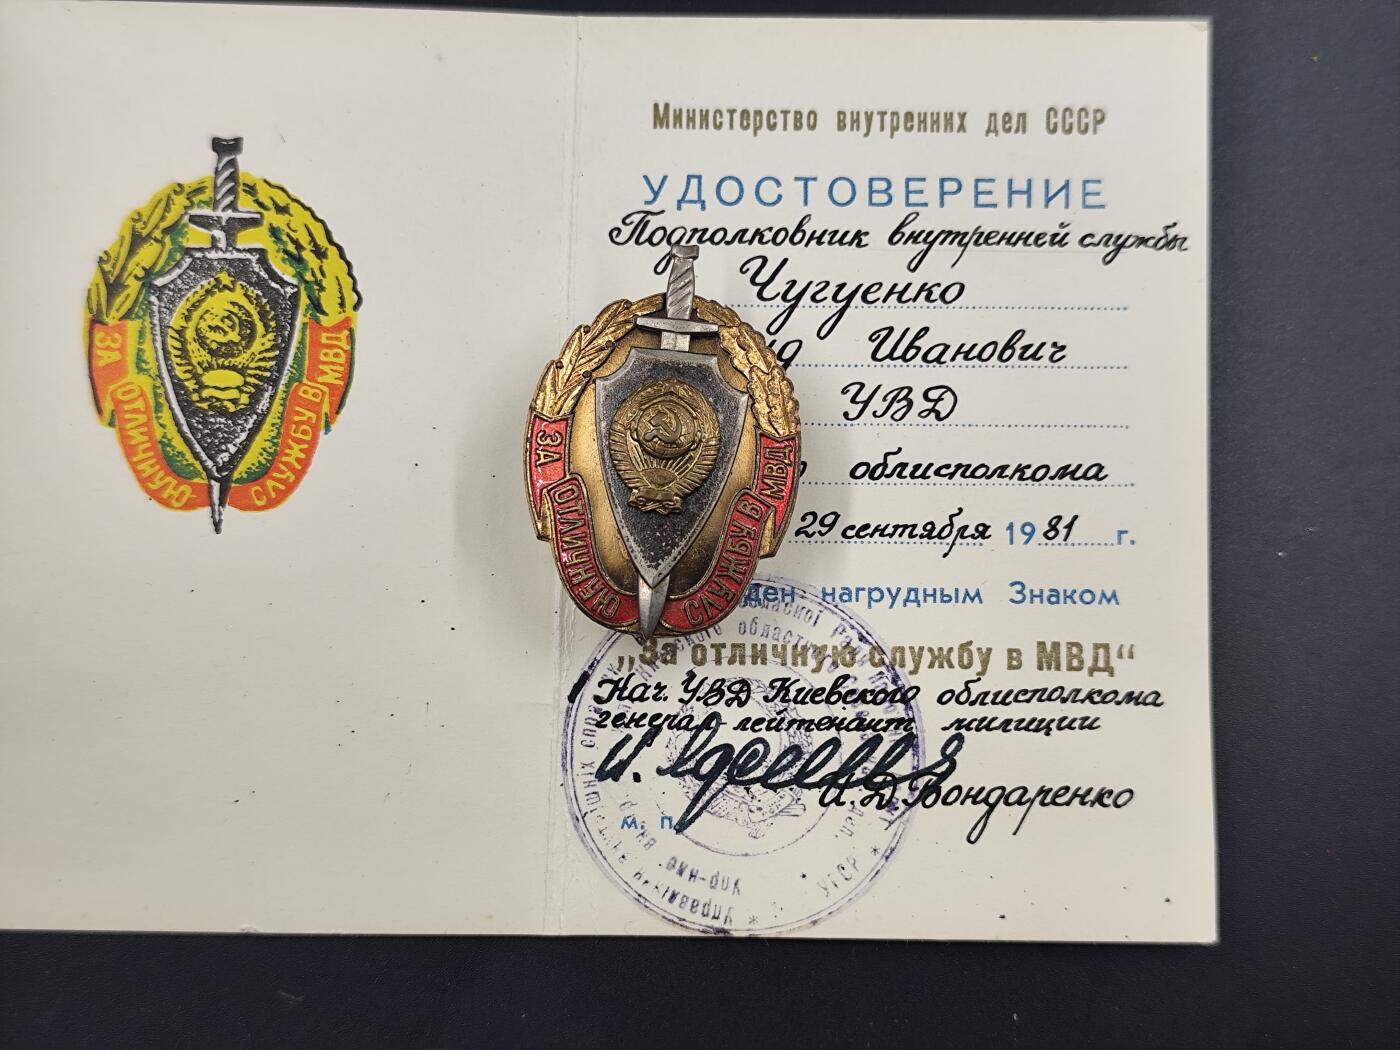 ЗА ОТЛИЧНУЮ СЛУЖБУ В МВД
Министерство внутренних дел СССР
УДОСТОВЕРЕНИЕ
Подполковник внутренней службы
Чугуенко
Иванович
УВД
облисполкома
29 сентября 1981 г.
ден нагрудным Знаком
„За отличную службу в МВД“
Нач. УВД Киевского облисполкома
генерал-лейтенант милиции
И. Д. Бондаренко
м. п.
ЗА ОТЛИЧНУЮ СЛУЖБУ В МВД